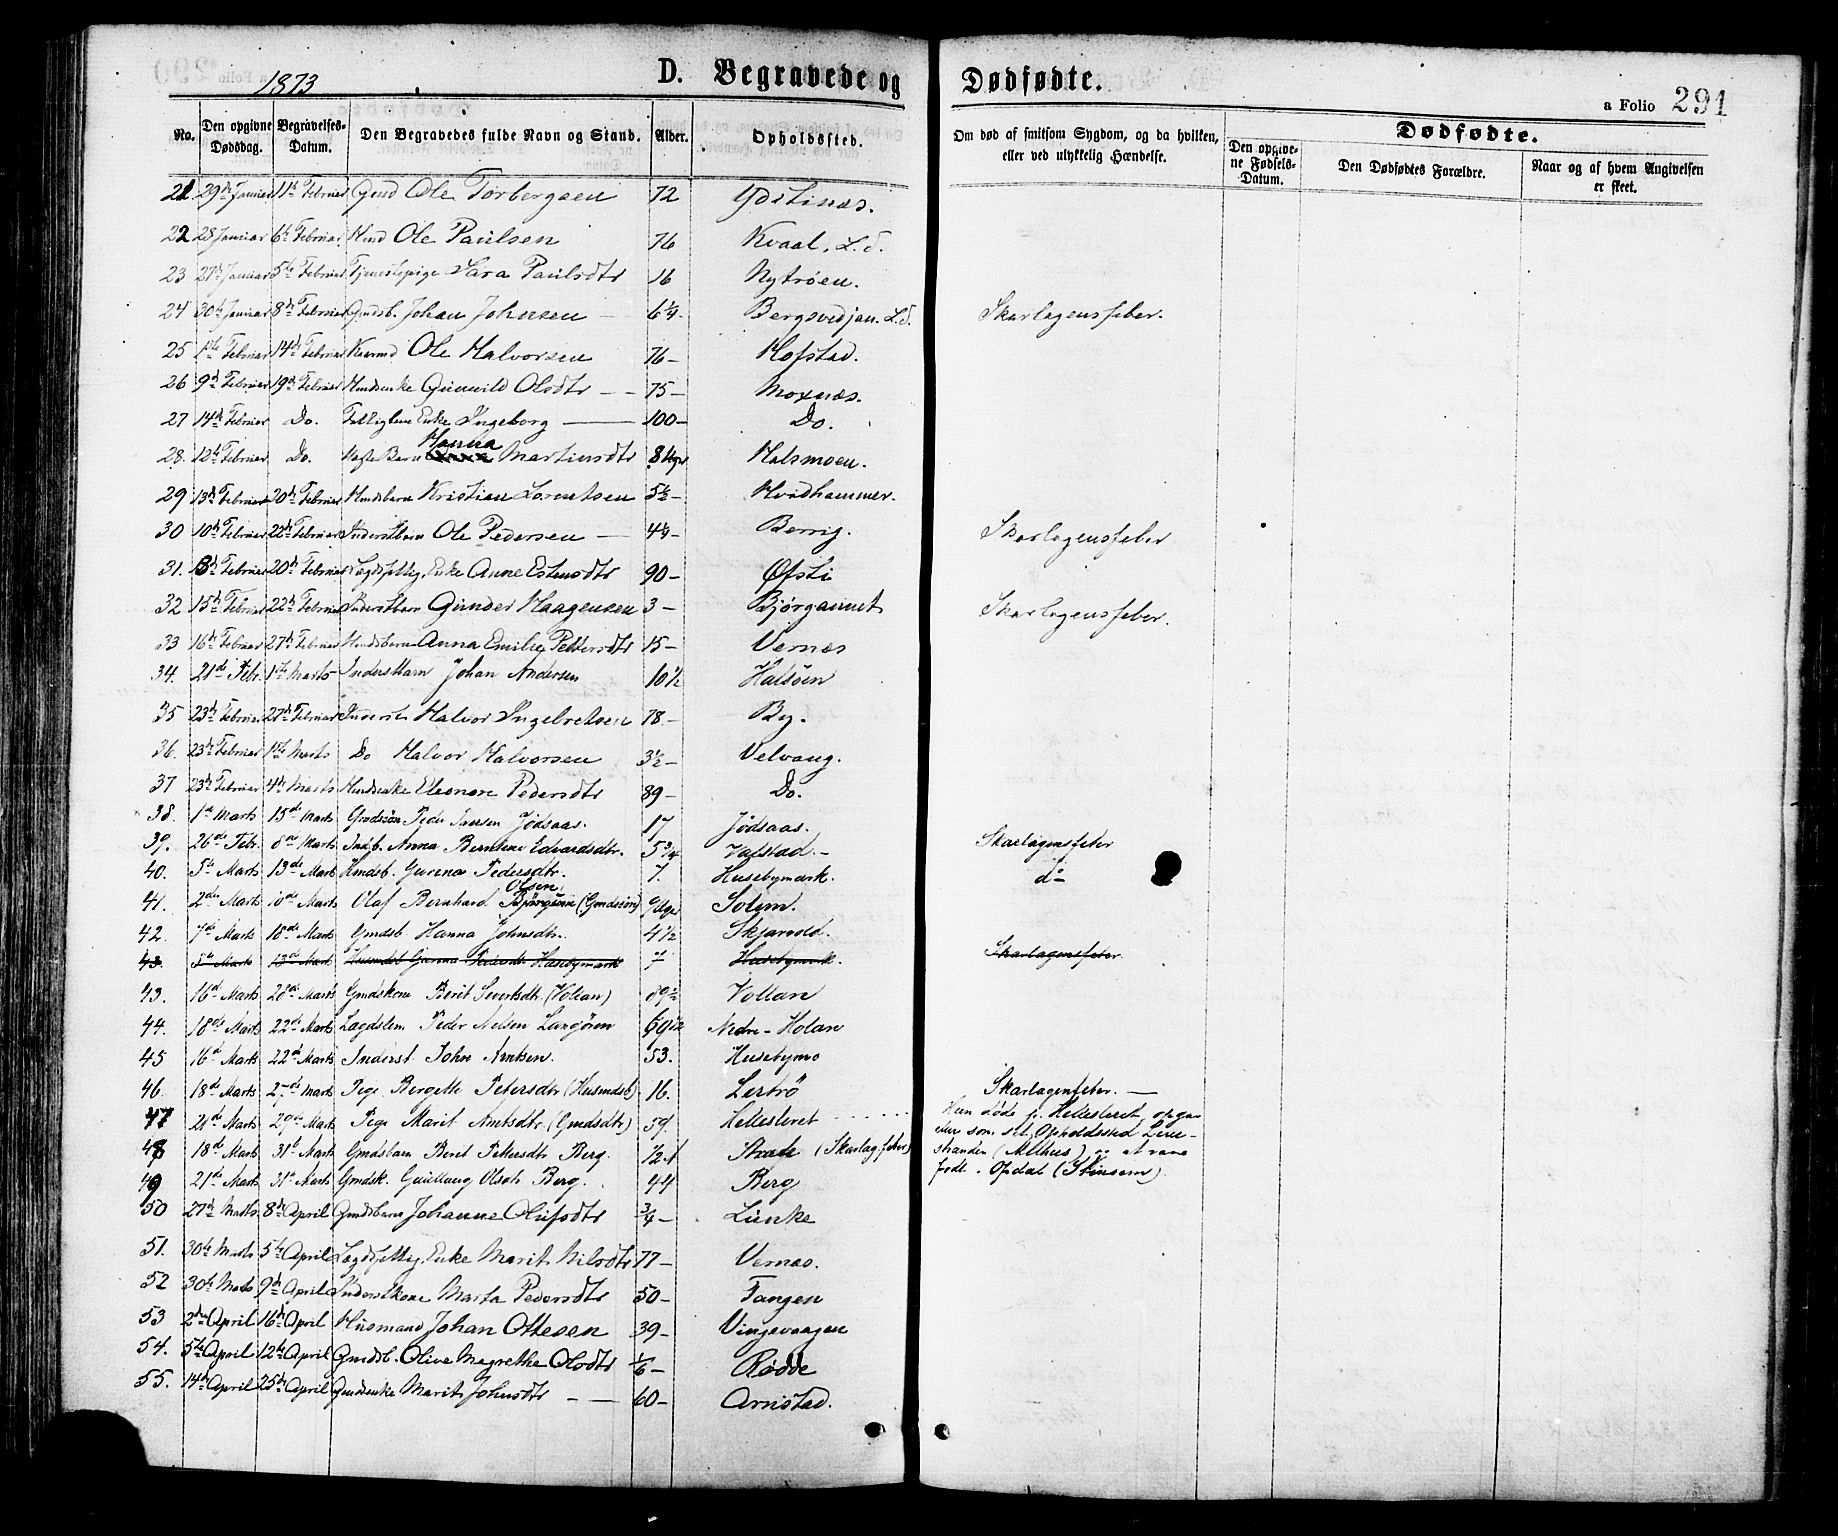 1873
D. Begravede og Dødfødte.
a Folio 291
No. Den opgivne Dødsdag. Begravelses-Datum. Den Begravedes fulde Navn og Stand. Alder. Opholdssted. Om død af smitsom Sygdom, og da hvilken, eller ved ulykkelig Hændelse. Dødfødte.
Den opgivne Fødsels-Datum. Den Dødfødtes Forældre. Naar og af hvem Angivelsen er skeet.
21 29de Januar 11te Februar Gmd Ole Torbergsen 72 Ydstinæs.
22 28 Januar 6te Februar Hmd Ole Paulsen 76 Kvaal, L.d.
23 27de Januar 5te Februar Tjenestepige Sara Paulsdtr 16 Nytrøen.
24 30te Januar 8de Februar Gmdsb. Johan Johnsen 6¼- Bergsvedjan. L.d. Skarlagensfeber.
25 1ste Februar 14de Februar Kaarmd Ole Halvorsen 76- Hofstad.
26 9de Februar 19de Februar Hmdsenke Gunnild Olsdtr 75- Moxnæs.
27 14de Februar Do. Fattiglem Enke Ingeborg 100- Do.
28. 12te Februar Do. Uægte Barn Hanna Martinusdtr 8 Uger Halsmoen.
29 13de Februar 20de Februar Hmdsbarn Kristian Lorentsen 5½- Hvidhammer.
30 10de Februar 22de Februar Inderstbarn Ole Pedersen 4¼- Berrig. Skarlagensfeber
31. 13de Februar 20de Februar Lægdsfattig. Enke Anne Estensdtr 90- Øfsti
32 15de Februar 22de Februar Inderstbarn Gunder Haagensen 3- Bjørgamnet Skarlagensfeber.
33 16de Februar 27de Februar Hmdsbarn Anna Emilie Pettersdtr 15- Vernæs
34. 21de Febr. 1ste Marts Inderstbarn Johan Andersen 10½ Halsöen
35 23de Februar 27de Februar Inderst Halvor Ingebretsen 78.- By.
36. 23de Februar 1ste Marts Do Halvor Halvorsen 3½- Velvang.
37 23de Februar 4de Marts Hmdsenke Eleonore Pedersdtr 89- Do.
38. 1ste Marts 15de Marts Gmdssön Peder Iversen Jødsaas. 17 Jødsaas.
39. 26de Febr. 8de Marts Indb. Anna Berntine Edvardsdtr. 5¾ Vafstad.- Skarlagensfeber
40. 5te Marts 13de Mart Hmdsb. Gurina Pedersdtr. 7. Husebymark. do
41. 2den Marts 10de Marts Olaf Bernhard Olsen (Gmdssön) 9 Uger Solem.
42. 7de Marts 18de Mart Gmdsb Hanna Johnsdtr. 4½ Skjervold.
43. 5te Marts 13de Mart Husmdsb Gurina Pedersdtr Husebymark 7 Husebymark. Skarlagensfeber.
43. 16de Marts 28de Marts Gmdskone Berit Sivertsdtr (Vollan) 89½ Vollan
44. 18de Marts 22de Marts Lægdslem Peder Nelsen Langören 69½ Nedre-Holan
45 16de Marts 22de Marts Inderst John Arntsen. 53. Husebymo
46. 18de Marts 27de Marts Pige Bergette Petersdtr (Husmdsb) 16. Lerbrö Skarlagensfeber.-
47 21de Marts 29de Mart Pige Marit Arntsdtr (Gmdsdtr) 59. Hellesteret Hun döde p. Hellesteret, opgav
48 18de Mart 31te Mart Gmdsbarn Berit Pettersdtr Berg. Strande (Skarlag.feber) Opholdssted (Melhus) og at være
49 21de Marts 31te Marts Gmdsk. Guillaug Olsdtr Berg. 44 Berg född i Opdal
50 27de Marts. 8de April Gmdsbarn Johanne Olufsdtr ¾- Lünke
51. 30te Marts 5te April Lægdsfattig Enke Marit Nilsdtr 77- Vernæs.
52 30te Marts 9de April Inderstkone Marta Pedersdtr 50- Tangen
53 2den April 16de April Husmand Johan Ottesen 39- Vingevaagen
54. 5te April 12te April Gmdsb. Olive Magrethe Olsdtr ⅙- Rødde
55. 14de April 25de April Gmdsenke Marit Johnsdtr 60- Arnstad.